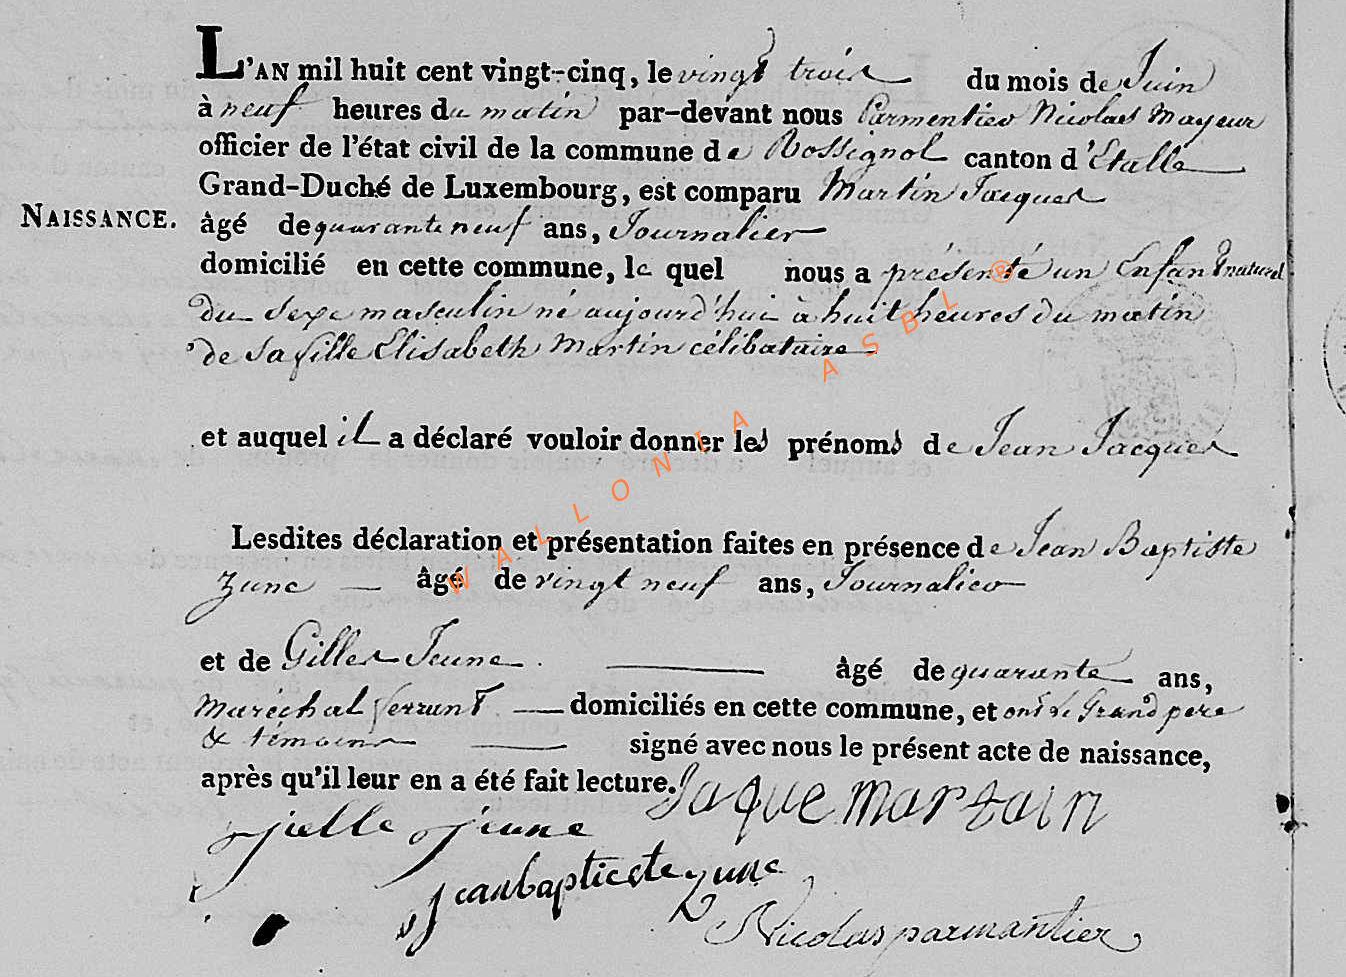 L'AN mil huit cent vingt-cinq, le vingt trois du mois de Juin
à neuf heures du matin par-devant nous Parmentier Nicolas Mayeur
officier de l'état civil de la commune de Rossignol canton d'Etalle
Grand-Duché de Luxembourg, est comparu Martin Jacques
NAISSANCE.
âgé de quarante neuf ans, Journalier
domicilié en cette commune, le quel nous a présenté un Enfant naturel
du Sexe masculin né aujourd'hui à huit heures du matin
de Sa fille Elisabeth Martin célibataire
et auquel il a déclaré vouloir donner les prénoms de Jean Jacques
Lesdites déclaration et présentation faites en présence de Jean Baptiste
Zune âgé de vingt neuf ans, Journalier
et de Gilles Jeune âgé de quarante ans,
Maréchal ferrant domiciliés en cette commune, et ont le Grand pere
& témoins signé avec nous le présent acte de naissance,
après qu'il leur en a été fait lecture. Jaque martain
jielle jeune
jean baptiste zune
Nicolas parmantier
WALLONIA ASBL ®